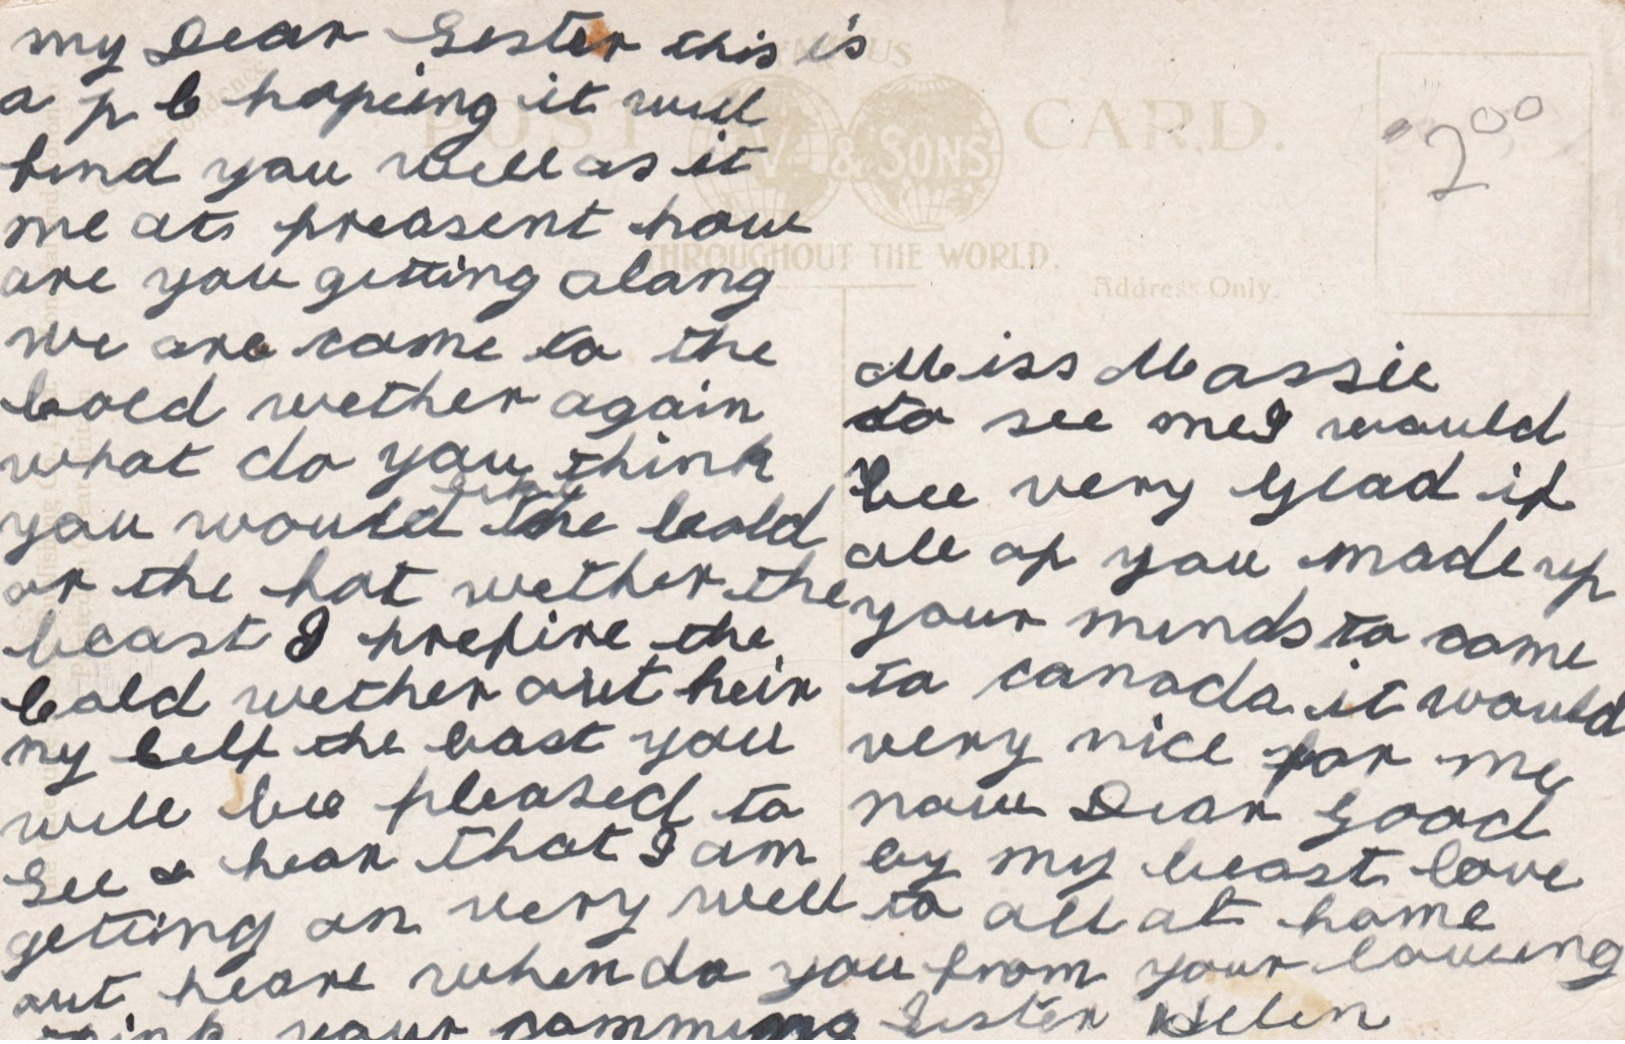 my Dear Sister this is
a p c hopeing it will
find you well as it
me at preasent how
are you getting along
we are come to the
coed wether again
what do you think
you would the coald
or the hot wether the
beast I prefire the
coald wether out heir
my self the bast you
will bee pleased to
See & hear that I am
getting on very well
out heare when do you
think your comming
FAMOUS
POST CARD.
& SONS
THROUGHOUT THE WORLD.
Address Only.
"2.00
Miss Massie
to see me I would
bee very glad if
all of you made up
your minds to come
to canada it would
very nice for me
now Dear good
by my beast love
to all at home
from your loveing
Sister Helen